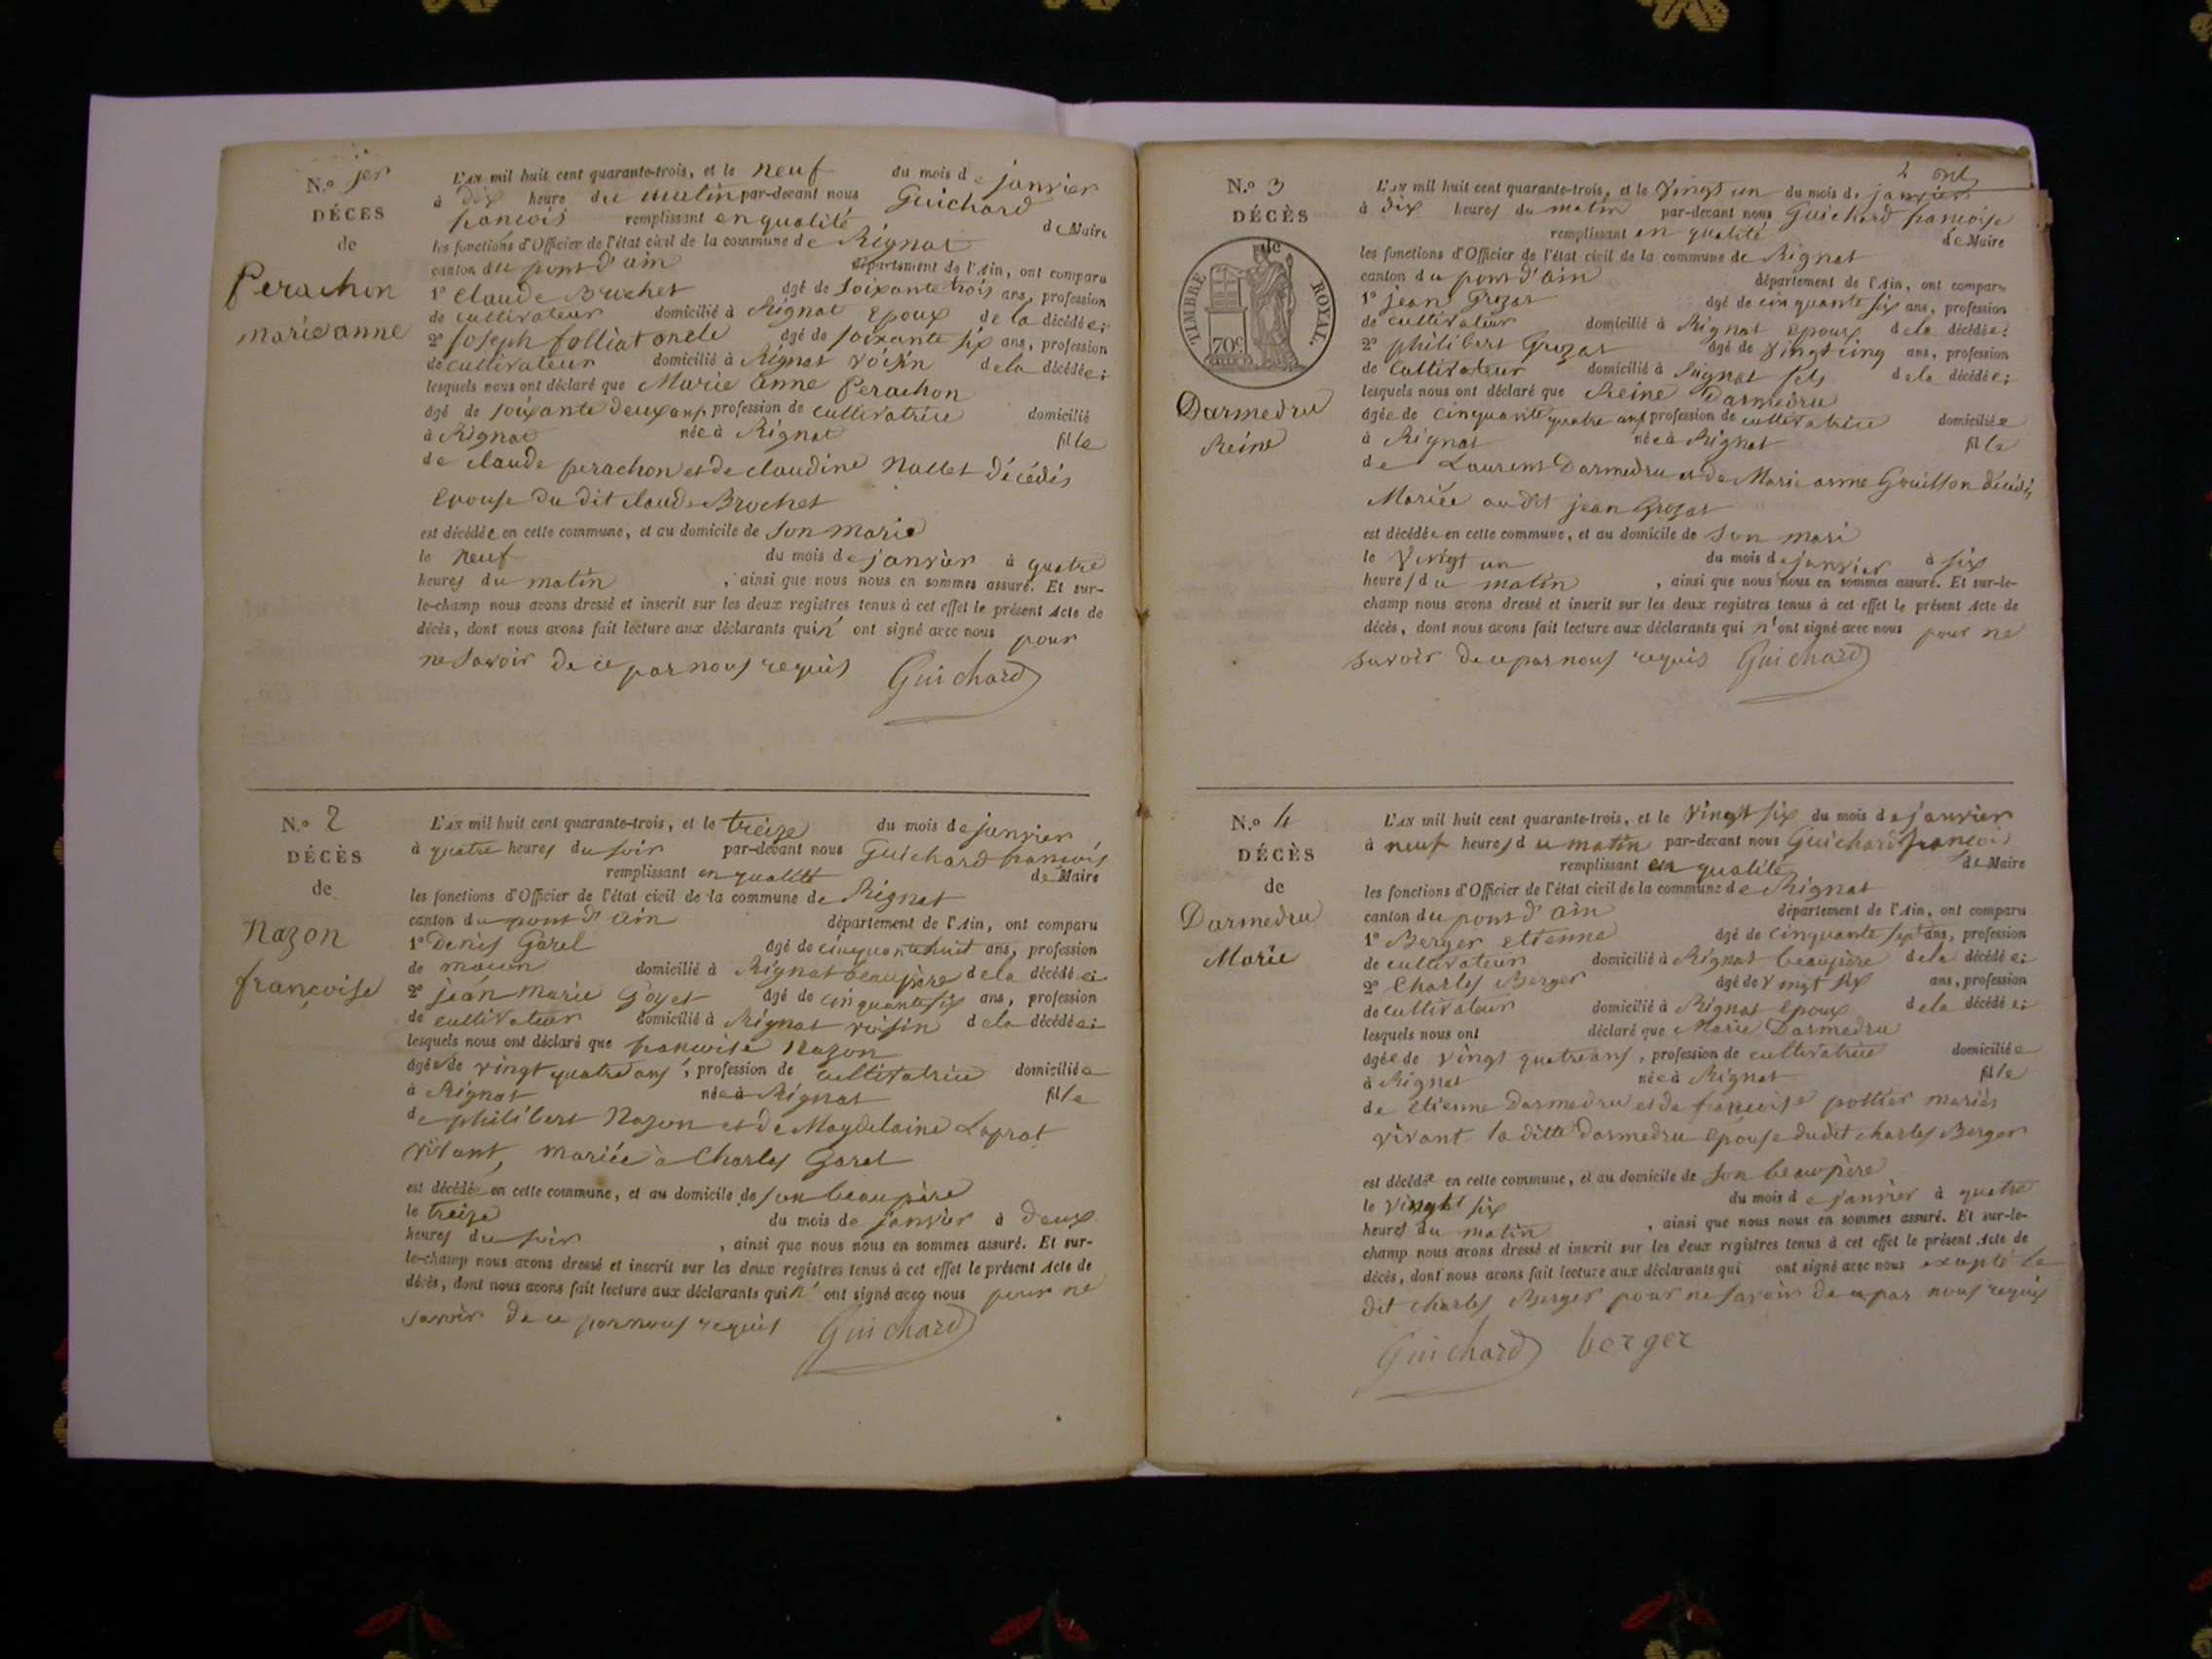 N.º 1er
DÉCES
de
Perachon
marie anne
L'AN mil huit cent quarante-trois, et le neuf du mois de janvier
à dix heure du matin par-devant nous Guichard
françois remplissant en qualité de Maire
les fonctions d'Officier de l'état civil de la commune de Rignat
canton du pont d'ain département de l'Ain, ont comparu
1º Claude Brochet agé de soixante trois ans, profession
de cultivateur domicilié à Rignat Epoux de la décédée;
2º Joseph folliat oncle agé de soixante six ans, profession
de cultivateur domicilié à Rignat voisin de la décédée;
lesquels nous ont déclaré que Marie anne Perachon
agé de soixante deux ans profession de cultivatrice domicilié
à Rignat née à Rignat fille
de claude perachon et de claudine Nallet décédés
Epouse du dit claude Brochet
est décédée en cette commune, et au domicile de son marie
le neuf du mois de janvier à quatre
heures du matin , ainsi que nous nous en sommes assuré. Et sur-
le-champ nous avons dressé et inscrit sur les deux registres tenus à cet effet le présent Acte de
décès, dont nous avons fait lecture aux déclarants qui n' ont signé avec nous pour
ne savoir de ce par nous requis Guichard
N.º 2
DÉCÈS
de
Nazon
françoise
L'AN mil huit cent quarante-trois, et le treize du mois de janvier
à quatre heures du soir par-devant nous Guichard françois
remplissant en qualité de Maire
les fonctions d'Officier de l'état civil de la commune de Rignat
canton du pont d'ain département de l'Ain, ont comparu
1º Denis Garel agé de cinquante huit ans, profession
de macon domicilié à Rignat beaupère de la décédée
2º jean marie Goyet agé de cinquante six ans, profession
de cultivateur domicilié à Rignat voisin de la décédée
lesquels nous ont déclaré que francoise Nazon
agée de vingt quatre ans, profession de cultivatrice domiciliée
à Rignat née à Rignat fille
de philibert Nazon et de Magdelaine Laprat
vivant, mariée à Charles Garel
est décédée en cette commune, et au domicile de son beaupère
le treize du mois de janvier à deux
heures du soir , ainsi que nous nous en sommes assuré. Et sur-
le-champ nous avons dressé et inscrit sur les deux registres tenus à cet effet le présent Acte de
décès, dont nous avons fait lecture aux déclarants qui n' ont signé avec nous pour ne
savoir de ce par nous requis Guichard
2
N.º 3
DÉCÈS
de
TIMBRE ROYAL.
70c
Darmedru
Reine
L'AN mil huit cent quarante-trois, et le Vingt un du mois de janvier
à dix heures du matin par-devant nous Guichard francoise
remplissant en qualité de Maire
les fonctions d'Officier de l'état civil de la commune de Rignat
canton du pont d'ain département de l'Ain, ont comparu
1º jean Grozat agé de cinquante six ans, profession
de cultivateur domicilié à Rignat epoux de la décédée;
2º philibert Grozat agé de vingt cinq ans, profession
de Cultivateur domicilié à Rignat fils de la décédée;
lesquels nous ont déclaré que Reine Darmedru
agée de cinquante quatre ans profession de cultivatrice domiciliée
à Rignat née à Rignat fille
de Laurent Darmedru et de Marie anne Gouillon décédés
Mariée au dit jean Grozat
est décédée en cette commune, et au domicile de son mari
le Vingt un du mois de janvier à six
heures du matin , ainsi que nous nous en sommes assuré. Et sur-le-
champ nous avons dressé et inscrit sur les deux registres tenus à cet effet le présent Acte de
décès, dont nous avons fait lecture aux déclarants qui n'ont signé avec nous pour ne
savoir de ce par nous requis Guichard
N.º 4
DÉCÈS
de
Darmedru
Marie
L'AN mil huit cent quarante-trois, et le Vingt six du mois de janvier
à neuf heures du matin par-devant nous Guichard françois
remplissant en qualité de Maire
les fonctions d'Officier de l'état civil de la commune de Rignat
canton du pont d'ain département de l'Ain, ont comparu
1º Berger etienne agé de cinquante sept ans, profession
de cultivateur domicilié à Rignat beaupère de la décédée;
2º Charles Berger agé de Vingt six ans, profession
de cultivateur domicilié à Rignat Epoux de la décédée;
lesquels nous ont déclaré que Marie Darmedru
agée de vingt quatre ans, profession de cultivatrice domiciliée
à Rignat née à Rignat fille
de etienne Darmedru et de françoise pottier mariés
vivant la ditte darmedru épouse dudit charles Berger
est décédée en cette commune, et au domicile de son beaupère
le vinght six du mois de janvier à quatre
heures du matin , ainsi que nous nous en sommes assuré. Et sur-le-
champ nous avons dressé et inscrit sur les deux registres tenus à cet effet le présent Acte de
décès, dont nous avons fait lecture aux déclarants qui ont signé avec nous excepté le
dit charles Berger pour ne savoir de ce par nous requis
Guichard berger